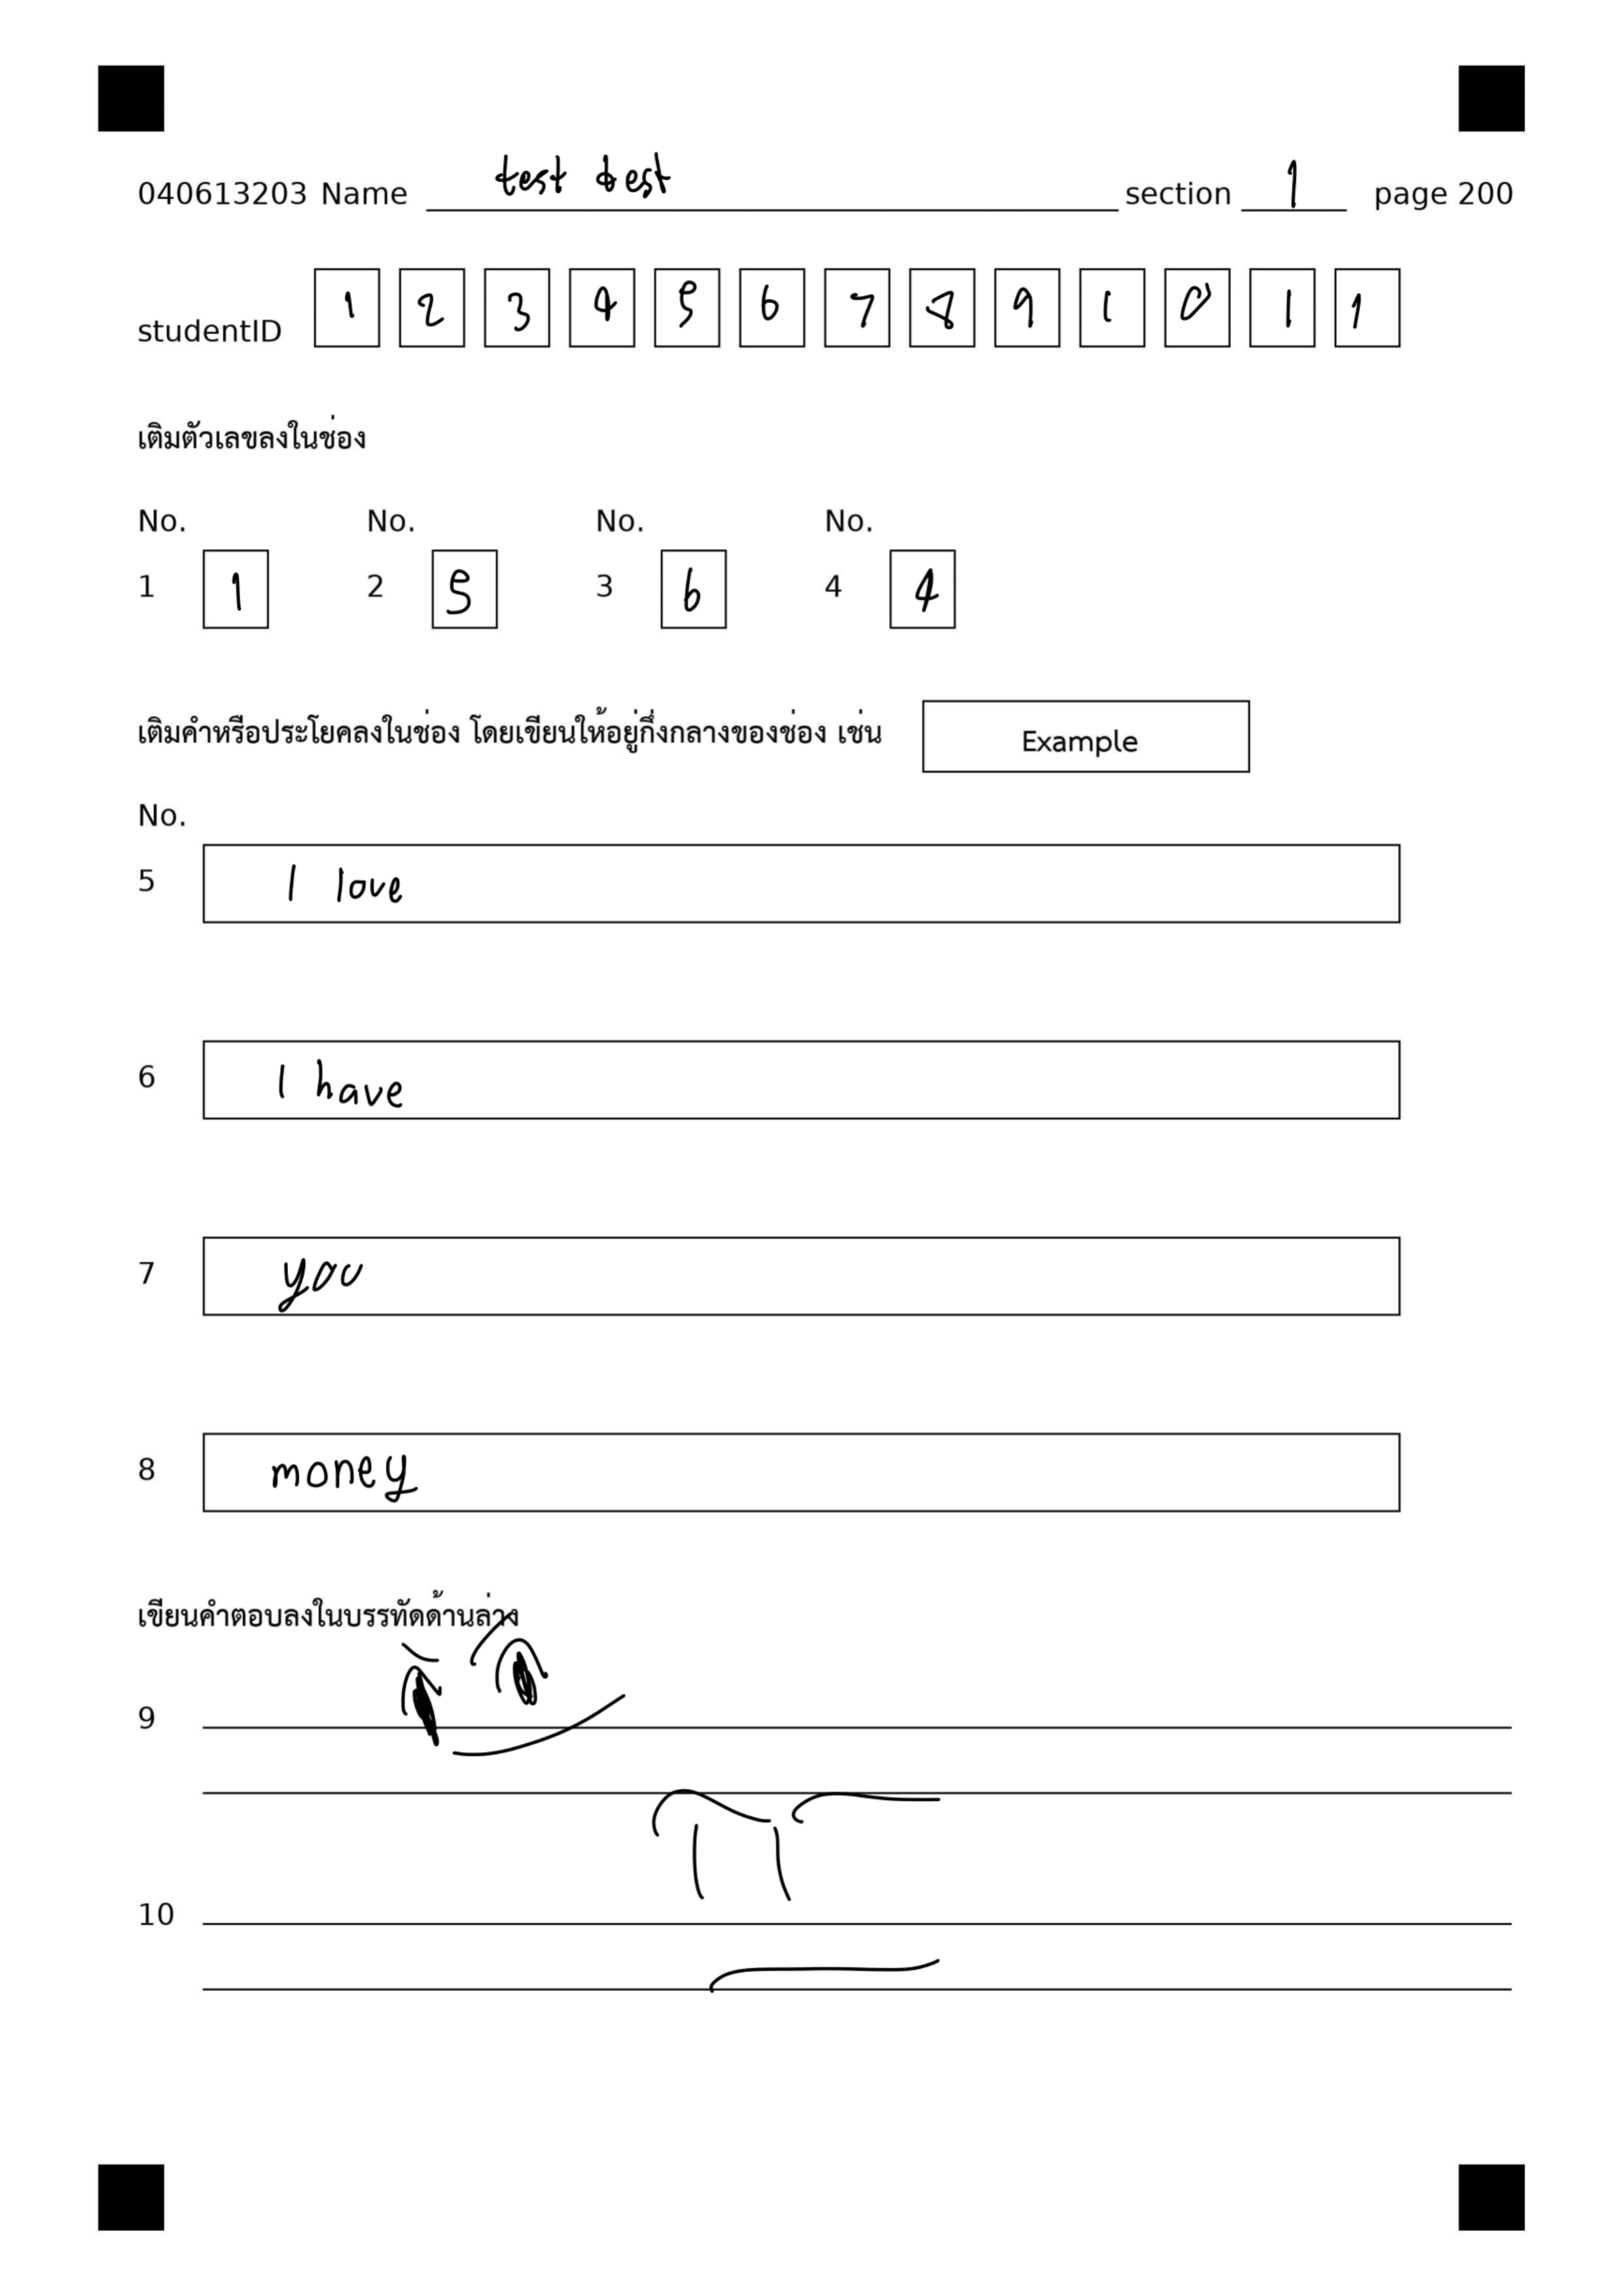 040613203 Name test test section 1 page 200
studentID 1 2 3 4 5 6 7 8 9 1 0 1 1
เติมตัวเลขลงในช่อง
No. No. No. No.
1 1 2 5 3 6 4 4
เติมคำหรือประโยคลงในช่อง โดยเขียนให้อยู่กึ่งกลางของช่อง เช่น Example
No.
5 I love
6 I have
7 you
8 money
เขียนคำตอบลงในบรรทัดด้านล่าง
9
10